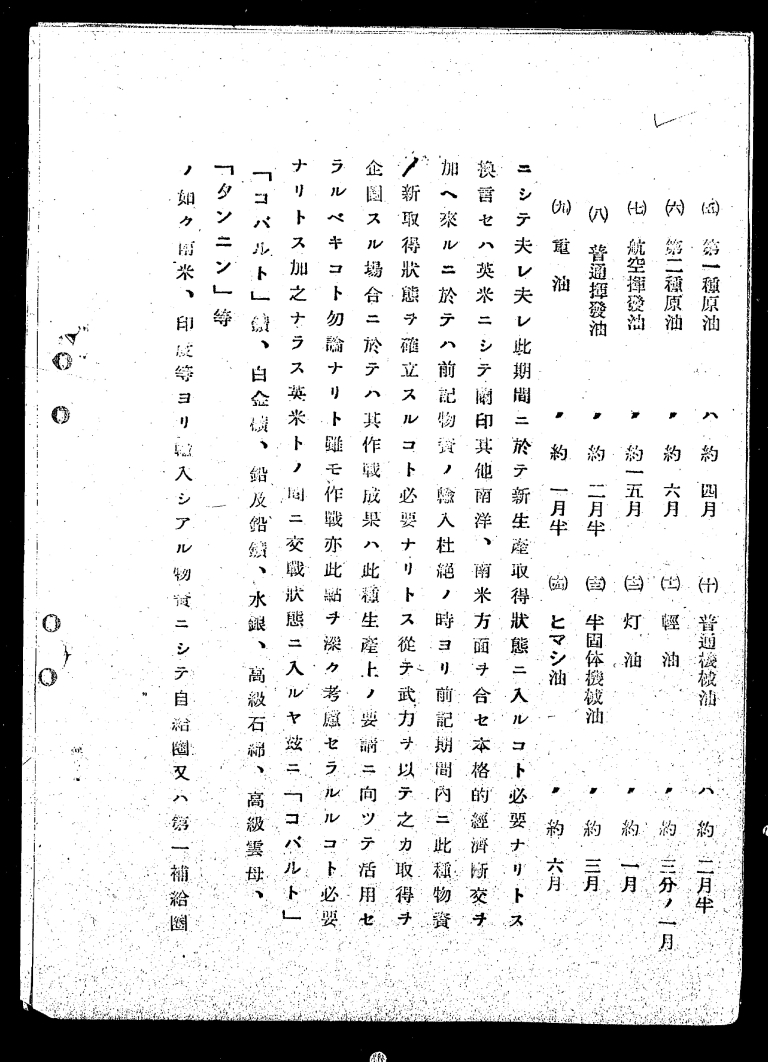 ㈤ 第一種原油 ハ 約 四月 ㈩ 普通機械油 ハ 約 二月半
㈥ 第二種原油 〃 約 六月 ⑾ 輕油 〃 約 三分ノ一月
㈦ 航空揮發油 〃 約一五月 ⑿ 灯油 〃 約 一月
㈧ 普通揮發油 〃 約 二月半 ⒀ 半固体機械油 〃 約 三月
㈨ 重油 〃 約 一月半 ヒマシ油 〃 約 六月
ニシテ夫レ夫レ此期間ニ於テ新生產取得狀態ニ入ルコト必要ナリトス
換言セハ英米ニシテ蘭印其他南洋、南米方面ヲ合セ本格的經濟斷交ヲ
加ヘ來ルニ於テハ前記物資ノ輸入杜絕ノ時ヨリ前記期間內ニ此種物資
ノ新取得狀態ヲ確立スルコト必要ナリトス從テ武力ヲ以テ之カ取得ヲ
企圖スル場合ニ於テハ其作戰成果ハ此種生產上ノ要請ニ向ツテ活用セ
ラルベキコト勿論ナリト雖モ作戰亦此點ヲ深ク考慮セラルルコト必要
ナリトス加之ナラス英米トノ間ニ交戰狀態ニ入ルヤ玆ニ「コバルト」
「コバルト」鑛、白金鑛、鉛及鉛鑛、水銀、高級石綿、高級雲母、
「タンニン」等
ノ如ク南米、印度等ヨリ輸入シアル物資ニシテ自給圈又ハ第一補給圈